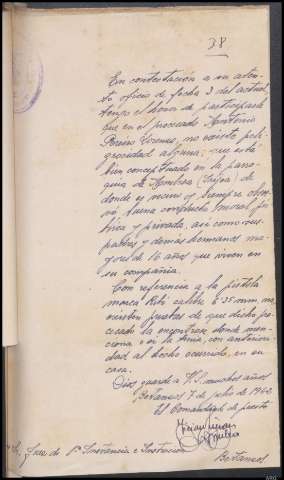 38
En contestación a su aten-
to oficio de fecha 3 del actual,
tengo el honor de participarle
que en el procesado
no existe peli-
grosidad alguna; que está
bien conceptuado en la parro-
quia de de
donde es vecino y siempre obser-
vó buena conducta moral, pú-
blica y privada, así como sus
padres y demás hermanos ma-
yores de 16 años que viven en
su compañía.
Con referencia a la pistola
marca calibre 6'35 mm no
existen pruebas de que dicho pro-
cesado la encontrase donde men-
ciona ni la tenía, con anteriori-
dad al hecho ocurrido, en su
casa.
Dios guarde a V.S. muchos años
Betanzos 7 de julio de
El Comandante de puesto
Juez de 1ª Instancia e Instrucción
Betanzos